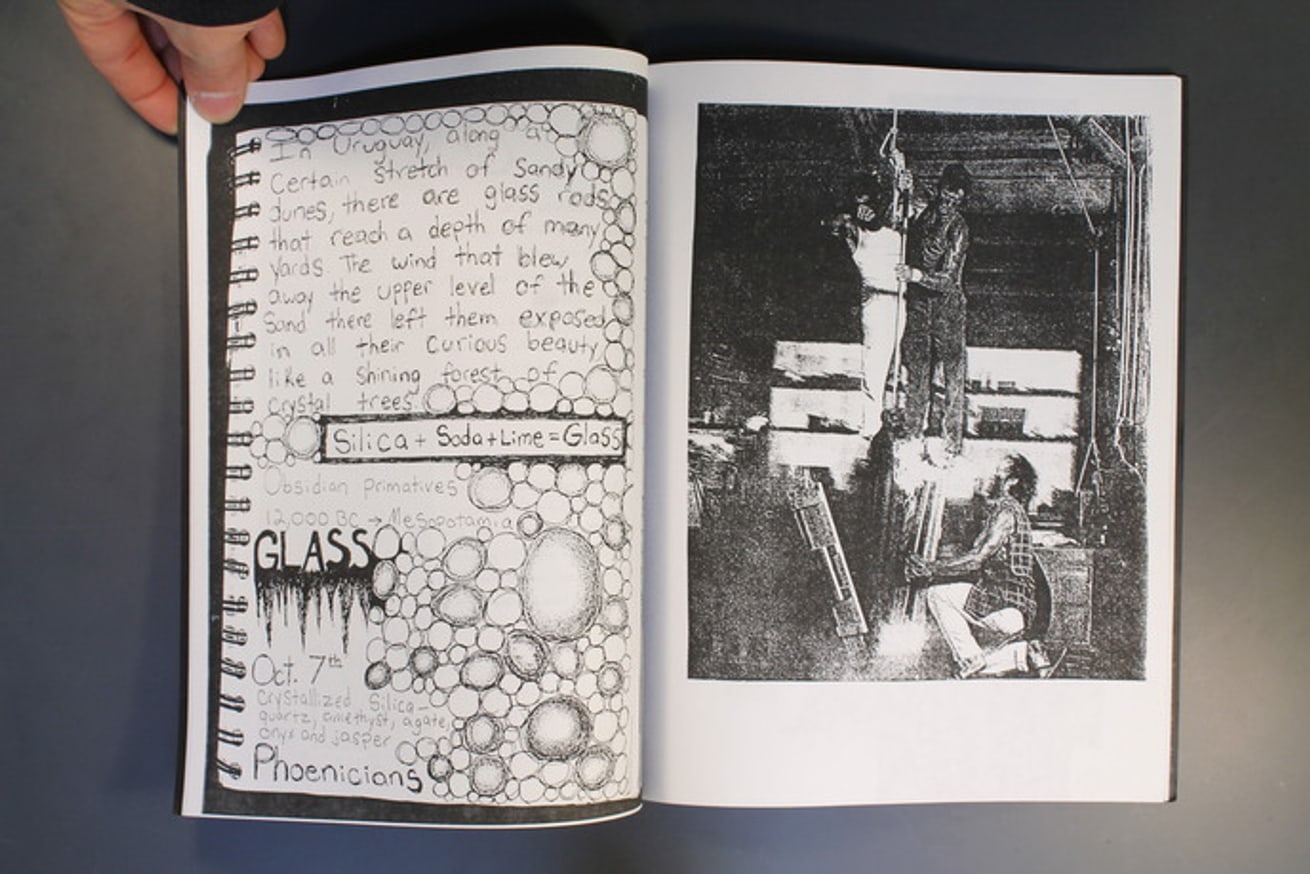 In Uruguay, along a
Certain stretch of Sandy
dunes, there are glass rods
that reach a depth of many
yards. The wind that blew
away the upper level of the
Sand there left them exposed
in all their Curious beauty
like a Shining forest of
crystal trees
Silica + Soda + Lime = Glass
Obsidian primatives
12,000 BC → Mesopotamia
GLASS
Oct. 7th
Crystallized Silica-
quartz, amethyst, agate,
onyx and jasper
Phoenicians